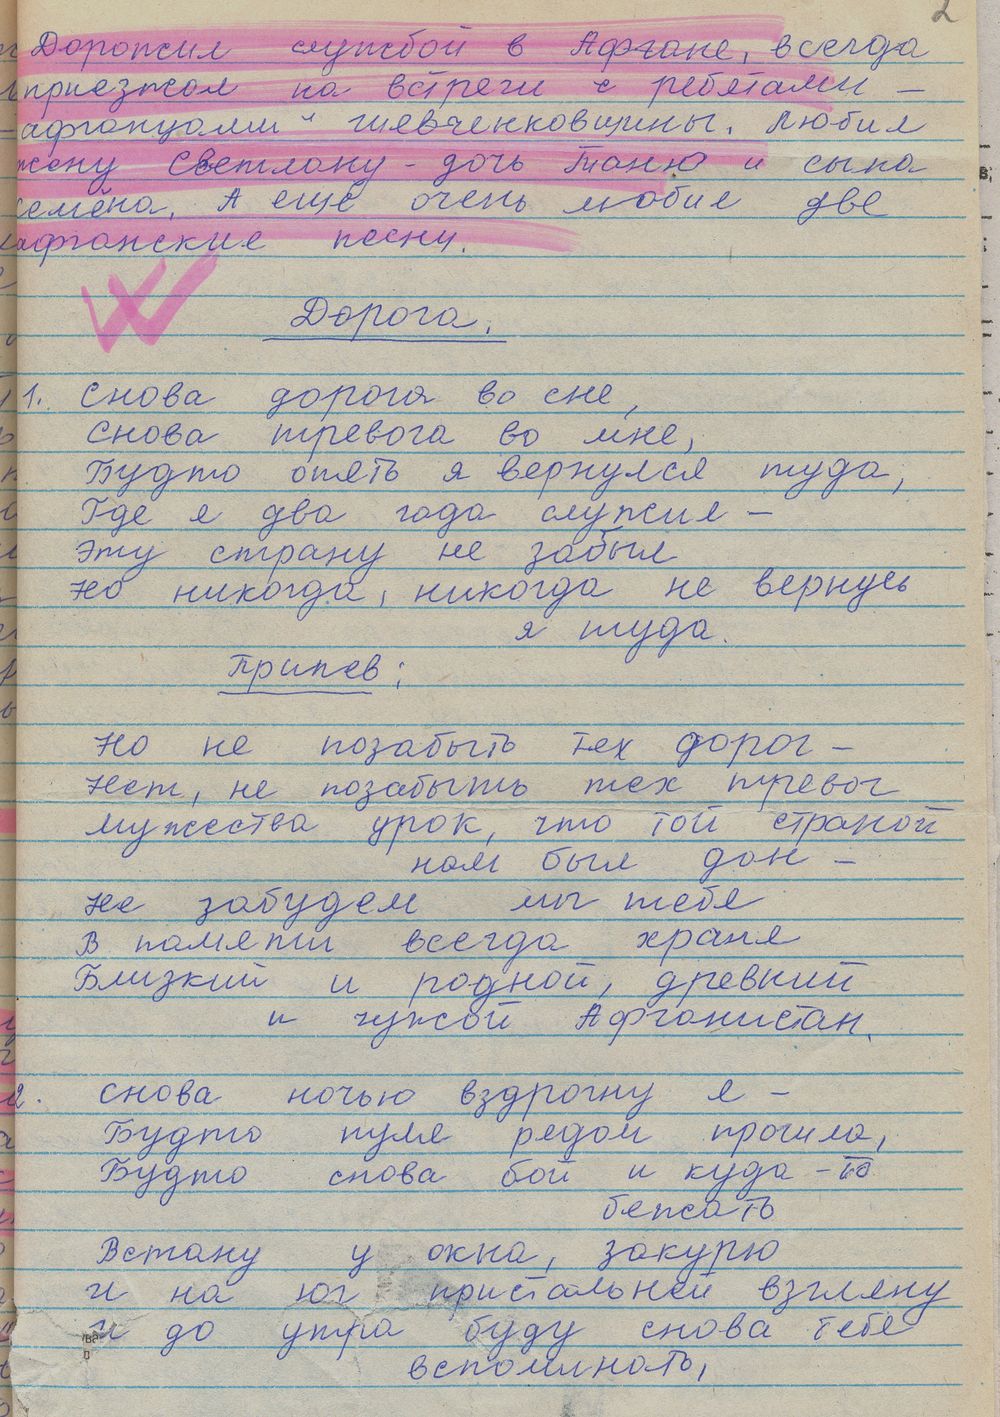 2
Дорожил службой в Афгане, всегда
приезжал на встречи с ребятами –
афганцами" Шевченковщины. Любил
жену Светлану – дочь Таню и сына
Семёна. А еще очень любил две
афганские песни.
Дорога.
1. Снова дорога во сне,
Снова тревога во мне,
Будто опять я вернулся туда,
Где я два года служил –
Эту страну не забыл
Но никогда, никогда не вернусь
я туда.
Припев:
Но не позабыть тех дорог –
Нет, не позабыть тех тревог
Мужества урок, что той страной
нам был дан –
Не забудем мы тебя
В памяти всегда храня
Близкий и родной, древний
и чужой Афганистан.
2. Снова ночью вздрогну я –
Будто пуля рядом прошла,
Будто снова бой и куда-то
бежать
Встану у окна, закурю
И на юг пристальней взгляну
И до утра буду снова тебя
вспоминать,